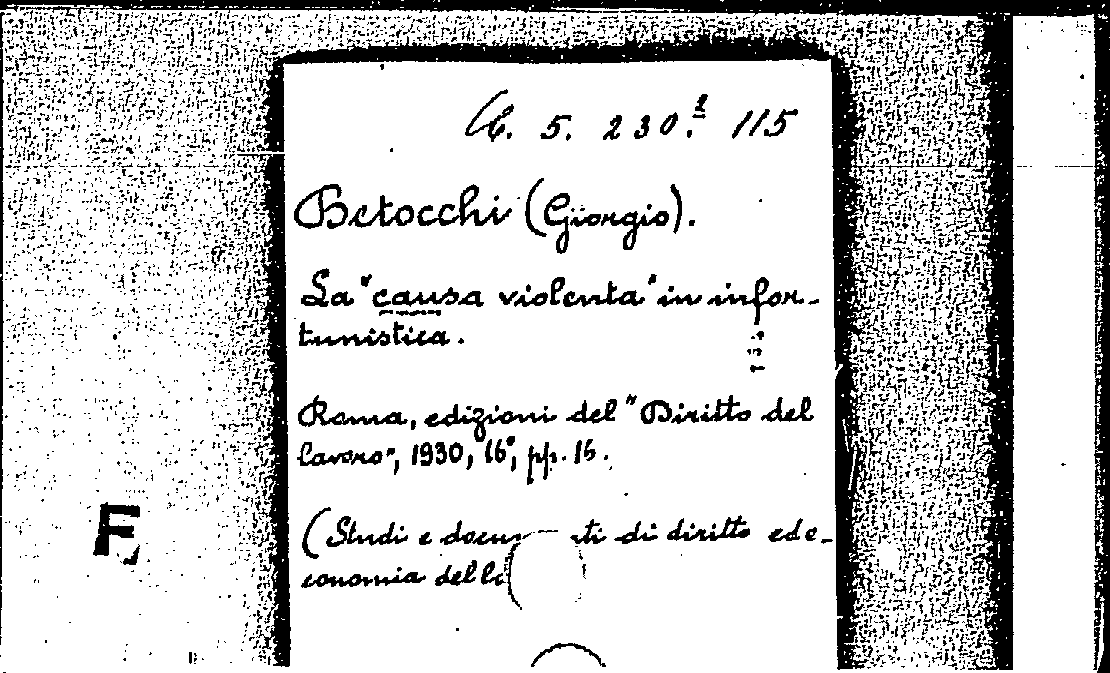 5. 230.² 115
Betocchi (Giorgio).
La "causa violenta" in infor-
tunistica.
Roma, edizioni del "Diritto del
lavoro", 1930, 16°, pp. 16.
(Studi e di diritto ed e-
conomia del
F